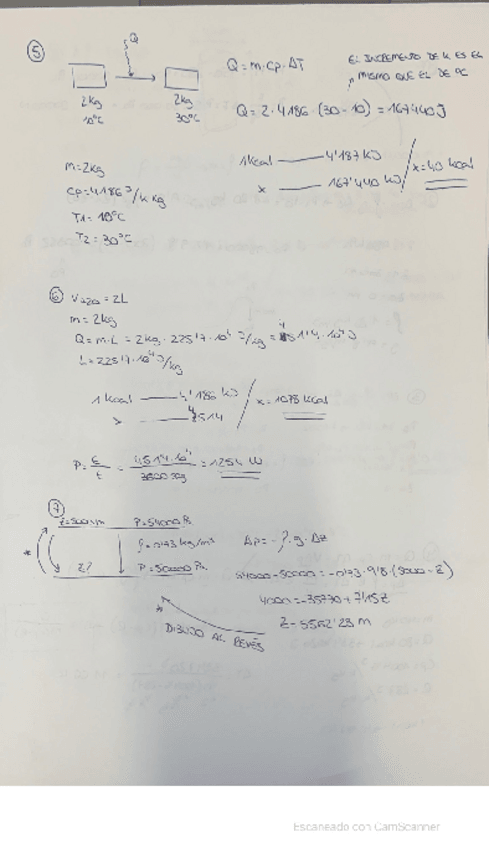 ⑤
Q
2kg 2kg
10ºC 30ºC
Q = m·Cp·ΔT
EL INCREMENTO DE K ES EL
MISMO QUE EL DE ºC
Q = 2·4186·(30-10) = 167440J
1kcal — 4'187 kJ
x — 167'440 kJ
x = 40 kcal
m = 2kg
Cp = 4186 J/K kg
T1 = 10ºC
T2 = 30ºC
⑥ VH2O = 2L
m = 2kg
Q = m·L = 2kg · 225'7·10⁴ J/kg = 451'4·10⁴J
L = 225'7·10⁴J/kg
1 kcal — 4'186 kJ
x — 4514
x = 1078 kcal
P = E/t = 451'4·10⁴/3600 seg = 1254 W
⑦
P = 54000 Pa
ρ = 0'73 kg/m³
z?
P = 50000 Pa
ΔP = -ρ·g·Δz
54000-50000 = -0'73·9'8·(5000-z)
4000 = -35770+7'15z
z = 5562'23 m
DIBUJO AL REVÉS
Escaneado con CamScanner